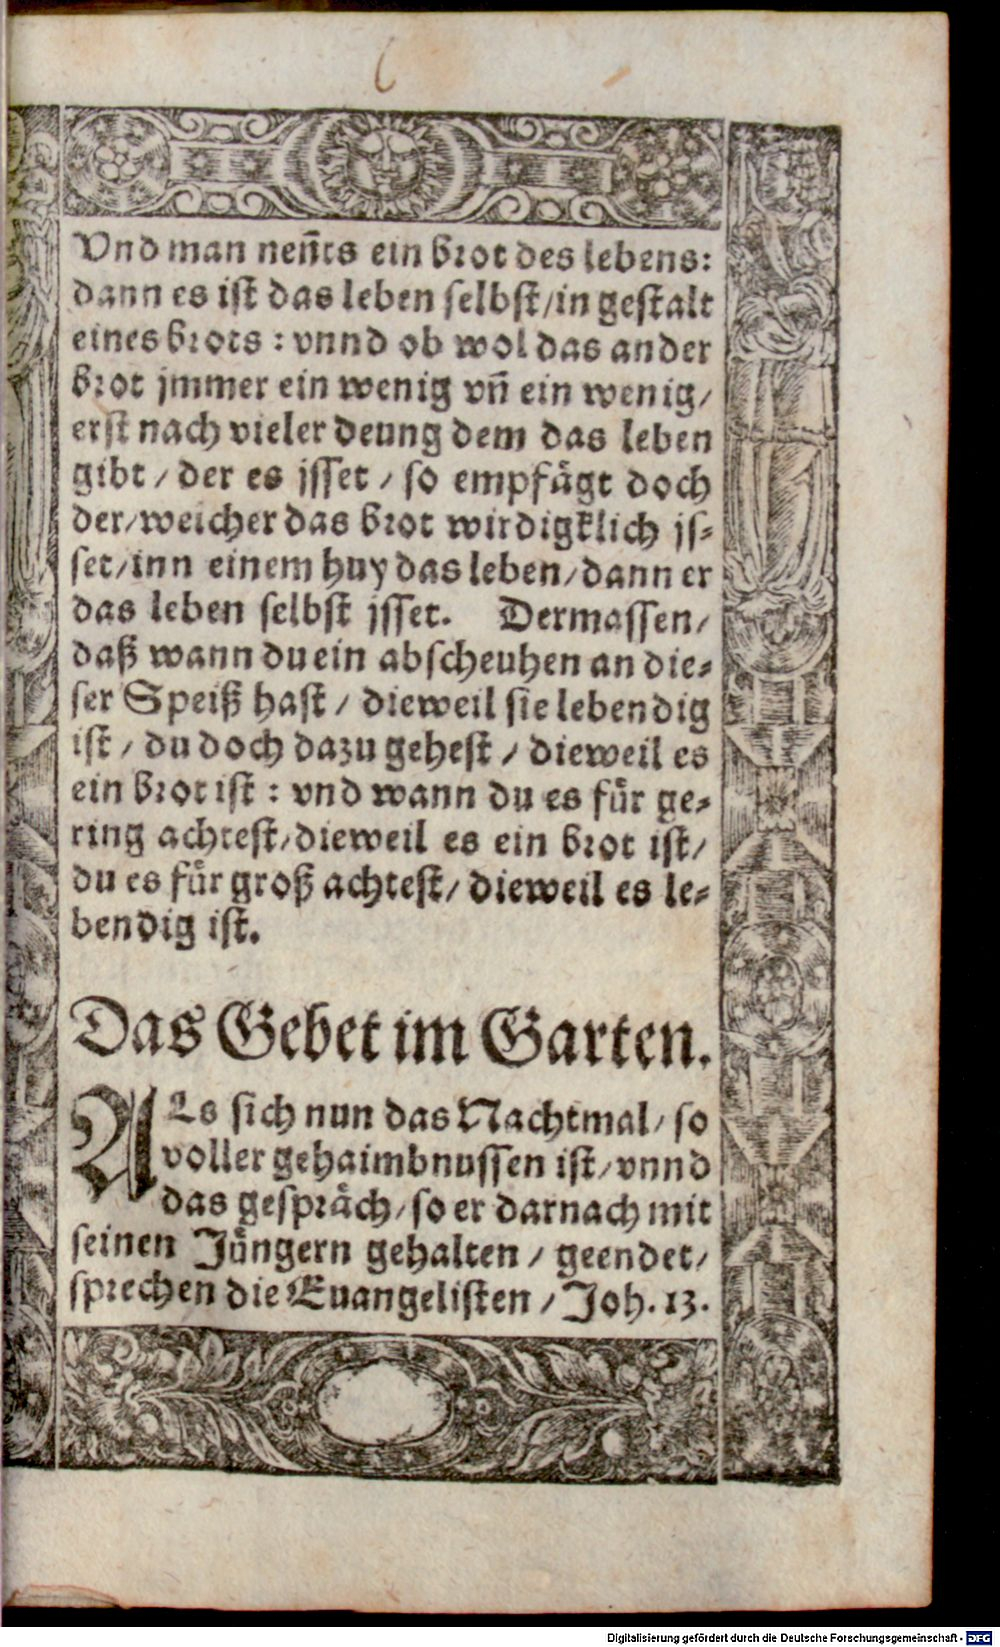 Vnd man neñts ein brot des lebens:
dann es ist das leben selbst/in gestalt
eines brots : vnnd ob wol das ander
brot jmmer ein wenig vñ ein wenig/
erst nach vieler deung dem das leben
gibt / der es jsset / so empfägt doch
der/welcher das brot wirdigklich js-
set/inn einem huy das leben/dann er
das leben selbst jsset. Dermassen/
daß wann du ein abscheuhen an die-
ser Speiß hast / dieweil sie lebendig
ist / du doch dazu gehest / dieweil es
ein brot ist : vnd wann du es für ge-
ring achtest/dieweil es ein brot ist/
du es für groß achtest/ dieweil es le-
bendig ist.
Das Gebet im Garten.
ALs sich nun das Nachtmal/ so
voller gehaimbnussen ist/vnnd
das gespräch/so er darnach mit
seinen Jüngern gehalten / geendet/
sprechen die Euangelisten / Joh. 13.
Digitalisierung gefördert durch die Deutsche Forschungsgemeinschaft - DFG